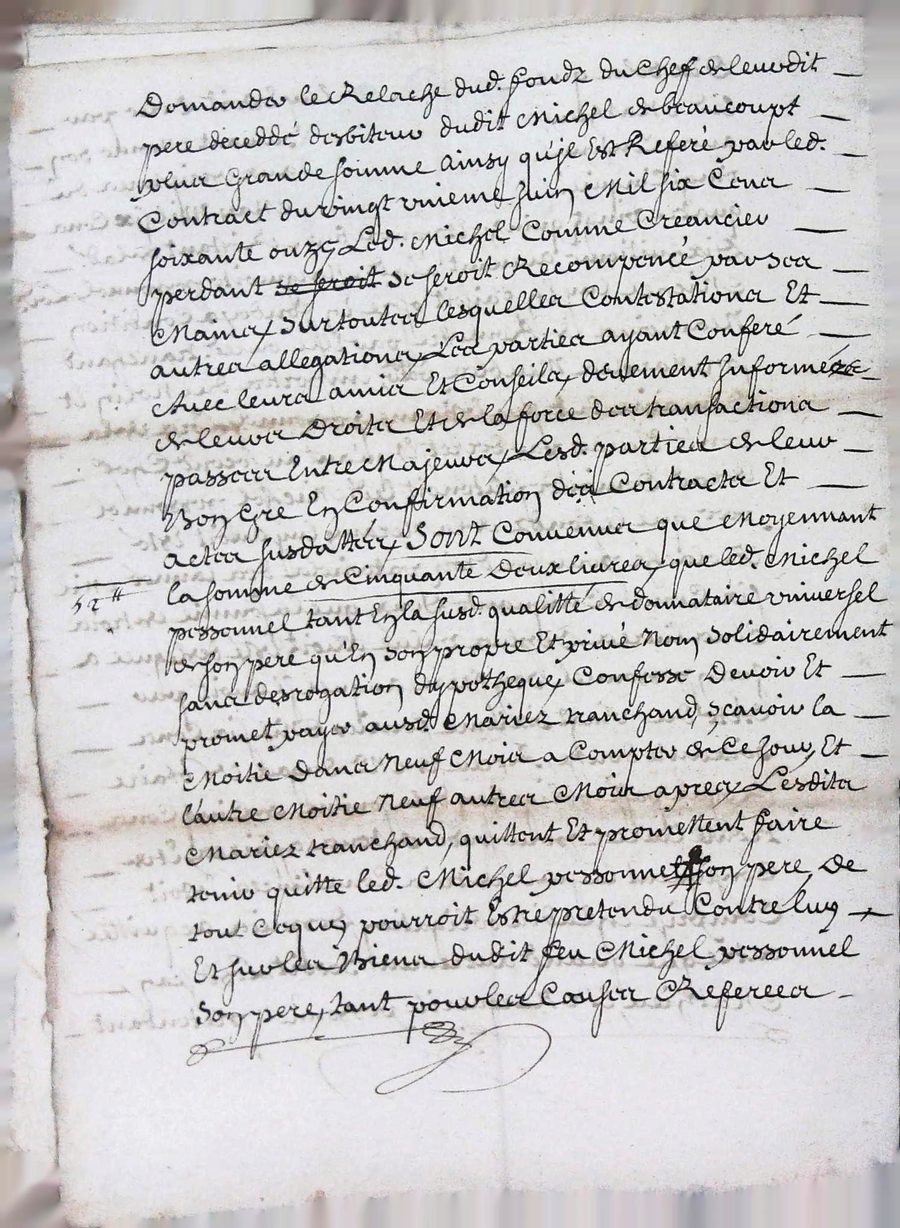 Demander le Relache dud. fondz du Chef de leurdit
pere deceddé debiteur dudit Michel de beaucoupt
plus Grande somme Ainsy qu'jl Est Referé par led.
Contract du vingt unieme Juin Mil six Cens
soixante onze Led. Michel Comme Creancier
perdant se seroit se seroit Recompencé par ses
Mains, sur toutes lesquelles Contestations Et
autres allegations, Les parties ayant Conferé
Avec leurs amis Et Conseils, deuement Informéz
de leurs Droits Et de la force des transactions
passees Entre Majeurs, Lesd. parties de leur
bon Gré En Confirmation des Contracts Et
actes susdattés, Sont Convenus que Moyennant
52 ₶
la somme de Cinquante Deux livres, que led. Michel
pessonnel tant En la susd. qualitté de donnataire universel
de son pere qu'En son propre Et privé Nom solidairement
sans desrogation dypotheque, Confesse Devoir Et
promet payer ausd. Mariez tranchand, sçavoir la
Moitie Dans Neuf Mois a Compter de Ce Jour, Et
l'autre Moitie Neuf autres Mois apres, Lesdits
Mariez tranchand, quittent Et promettent faire
tenir quitte led. Michel pessonnel son pere, De
tout Ceque pourroit Estre pretendu Contre luy
Et sur les Biens dudit feu Michel pessonnel
son pere, tant pour les Causes Referees